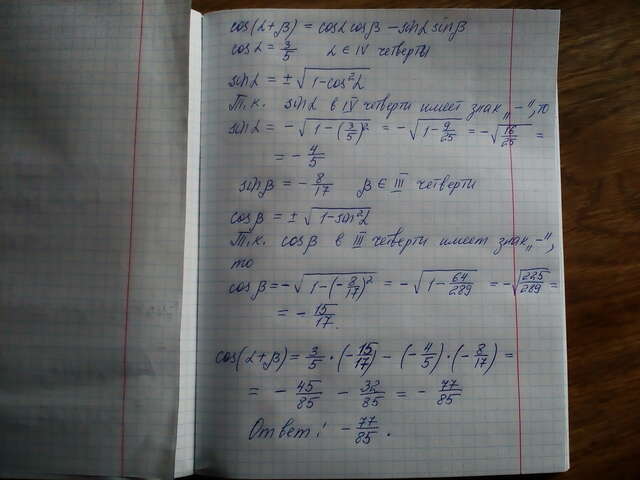 cos(α+β) = cosα cosβ − sinα sinβ
cosα = 3/5   α ∈ IV четверти
sinα = ±√(1−cos²α)
Т.к. sinα в IV четверти имеет знак „−", то
sinα = −√(1−(3/5)²) = −√(1−9/25) = −√(16/25) =
= −4/5
sinβ = −8/17   β ∈ III четверти
cosβ = ±√(1−sin²α)
Т.к. cosβ в III четверти имеет знак „−",
то
cosβ = −√(1−(−8/17)²) = −√(1−64/289) = −√(225/289) =
= −15/17.
cos(α+β) = 3/5 · (−15/17) − (−4/5) · (−8/17) =
= −45/85 − 32/85 = −77/85
Ответ: −77/85.